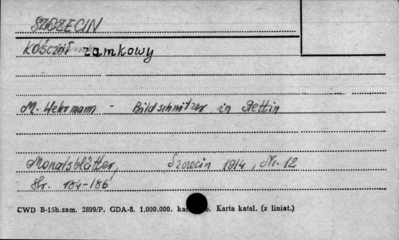 SZCZECIN
KOŚCIÓŁ zamkowy
M. Wehrmann - Bildschnitzer in Stettin
Monatsblätter, Szczecin 1914, Nr. 12
Str. 184-186
CWD B-15b.zam. 2899/P. GDA-8. 1.000.000. Karta katal. (z liniat.)